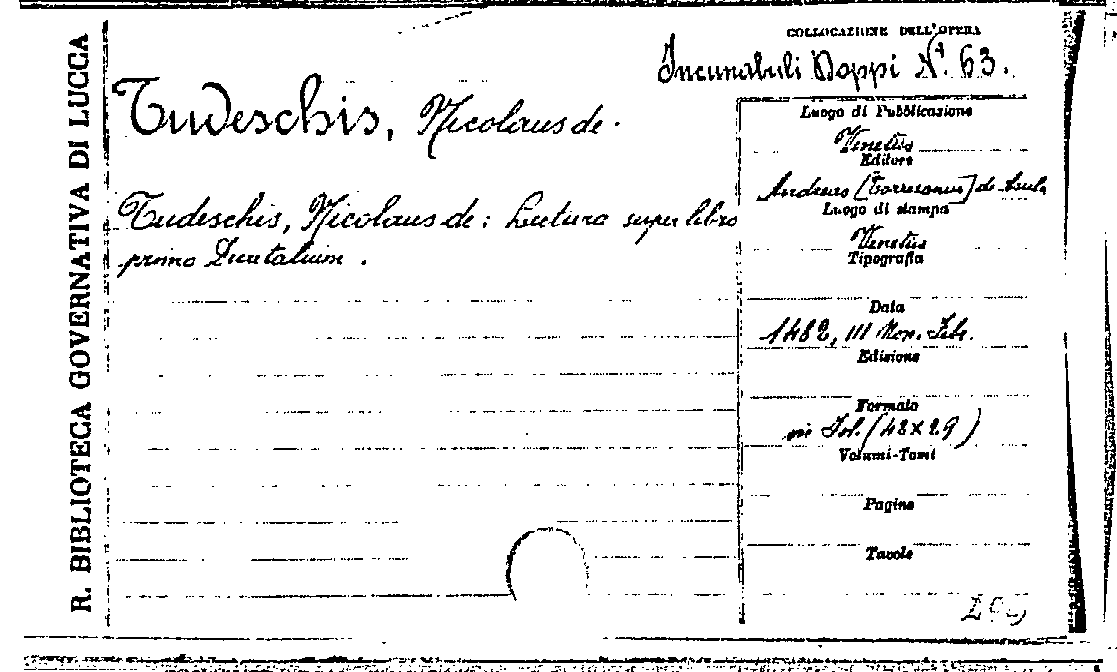 R. BIBLIOTECA GOVERNATIVA DI LUCCA
COLLOCAZIONE DELL'OPERA
Incunabuli Doppi N. 63.
Tudeschis, Nicolaus de.
Tudeschis, Nicolaus de: Lectura super libro
primo Decretalium.
Luogo di Pubblicazione
Venetiis
Editore
Andreas [Torresanus] de Asula
Luogo di stampa
Venetiis
Tipografia
Data
1482, III Non. Feb.
Edizione
Formato
in Fol. (42x29)
Volumi-Tomi
Pagine
Tavole